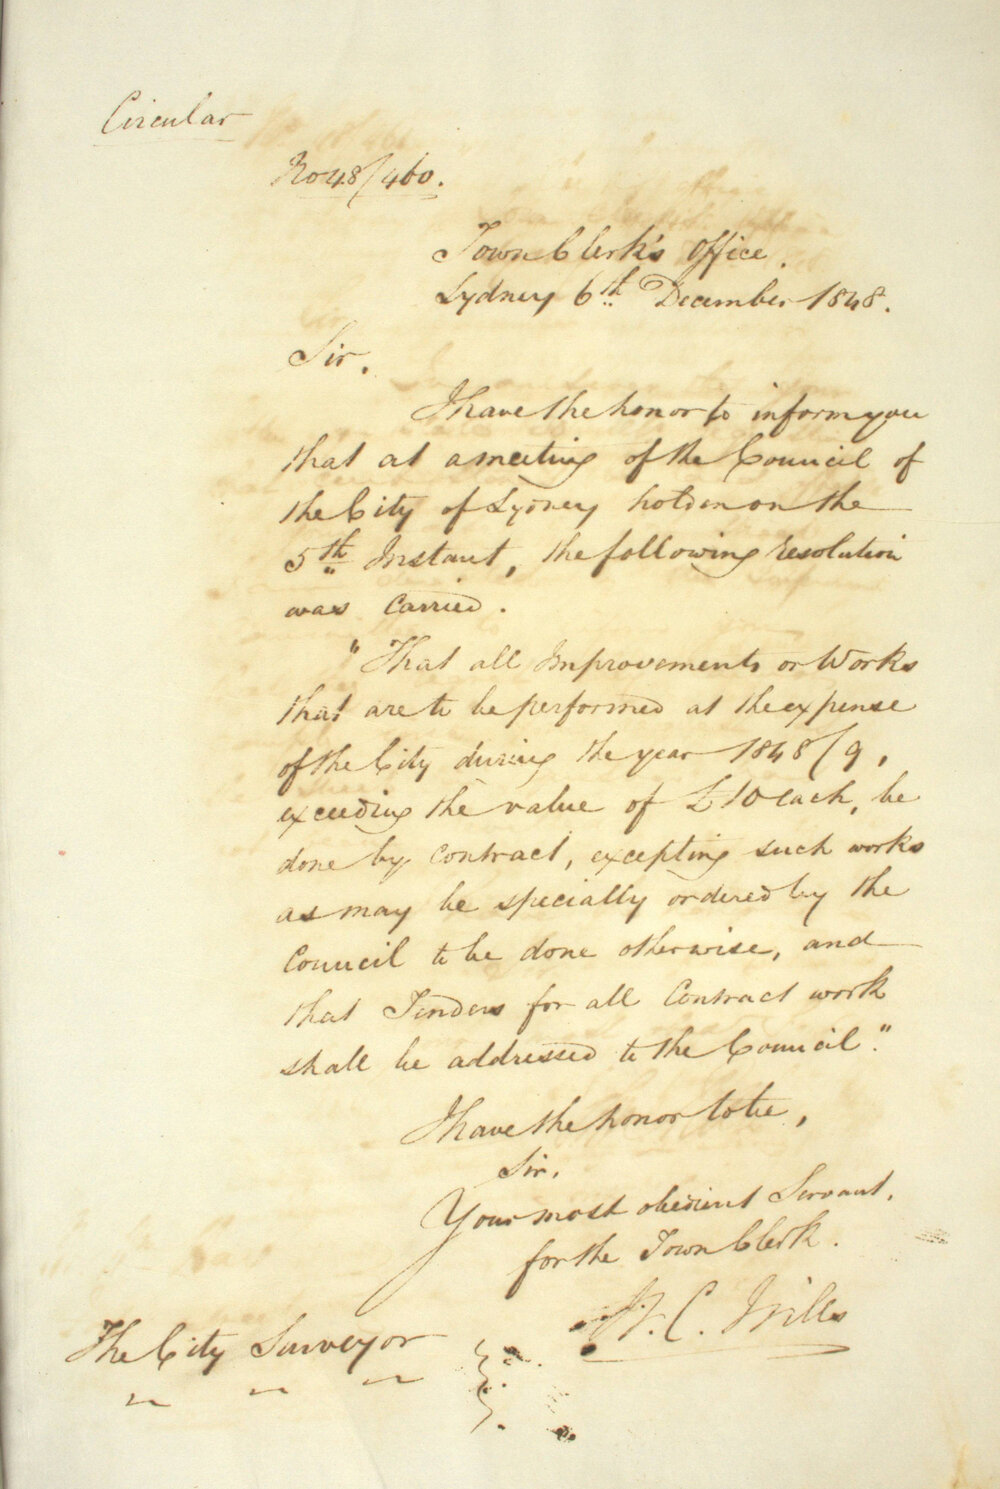 Circular
No 48/460.
Town Clerk's Office.
Sydney 6th December 1848.
Sir,
I have the honor to inform you
that at a meeting of the Council of
the City of Sydney holden on the
5th Instant, the following resolution
was carried.
"That all Improvements or Works
that are to be performed at the expense
of the City during the year 1848/9,
exceeding the value of £10 each, be
done by contract, excepting such works
as may be specially ordered by the
Council to be done otherwise, and
that Tenders for all Contract work
shall be addressed to the Council."
I have the honor to be,
Sir,
Your most obedient Servant,
for the Town Clerk.
C. Wills
The City Surveyor
" " "